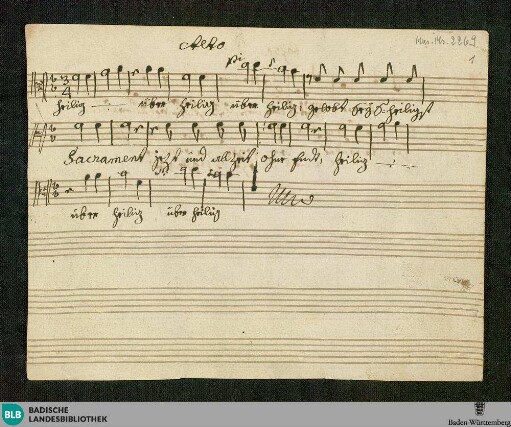 Alto
Mus. Hs. 886
1
heilig über heilig über heilig, gelobt Seÿ S: heiligst
Sacrament jezt und allzeit ohne Endt, heilig
über heilig über heilig
BLB BADISCHE LANDESBIBLIOTHEK
Baden Württemberg